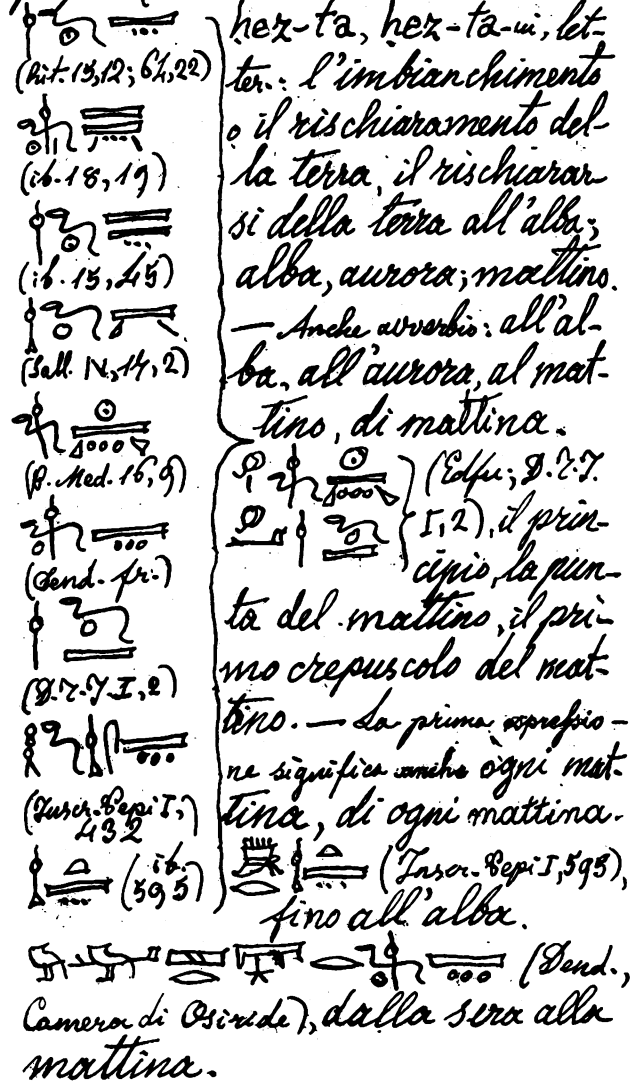 (Rit. 15,12; 64,22)
(ib. 18, 19)
(ib. 15, 45)
(Sall. IV, 14, 2)
(P. Med. 16, 9)
(Dend. fr.)
I, 2)
(Inscr. Pepi I,
432
(ib.
595)
ḥez-ta, ḥez-ta-ui, let-
ter.: l'imbianchimento
o il rischiaramento del-
la terra, il rischiarar-
si della terra all'alba;
alba, aurora; mattino.
— Anche avverbio: all'al-
ba, all'aurora, al mat-
tino, di mattina.
(Edfu;
I, 2), il prin-
cipio, la pun-
ta del mattino, il pri-
mo crepuscolo del mat-
tino. — La prima espressio-
ne significa anche ogni mat-
tina, di ogni mattina.
(Inscr. Pepi I, 595),
fino all'alba.
(Dend.,
Camera di Osiride), dalla sera alla
mattina.